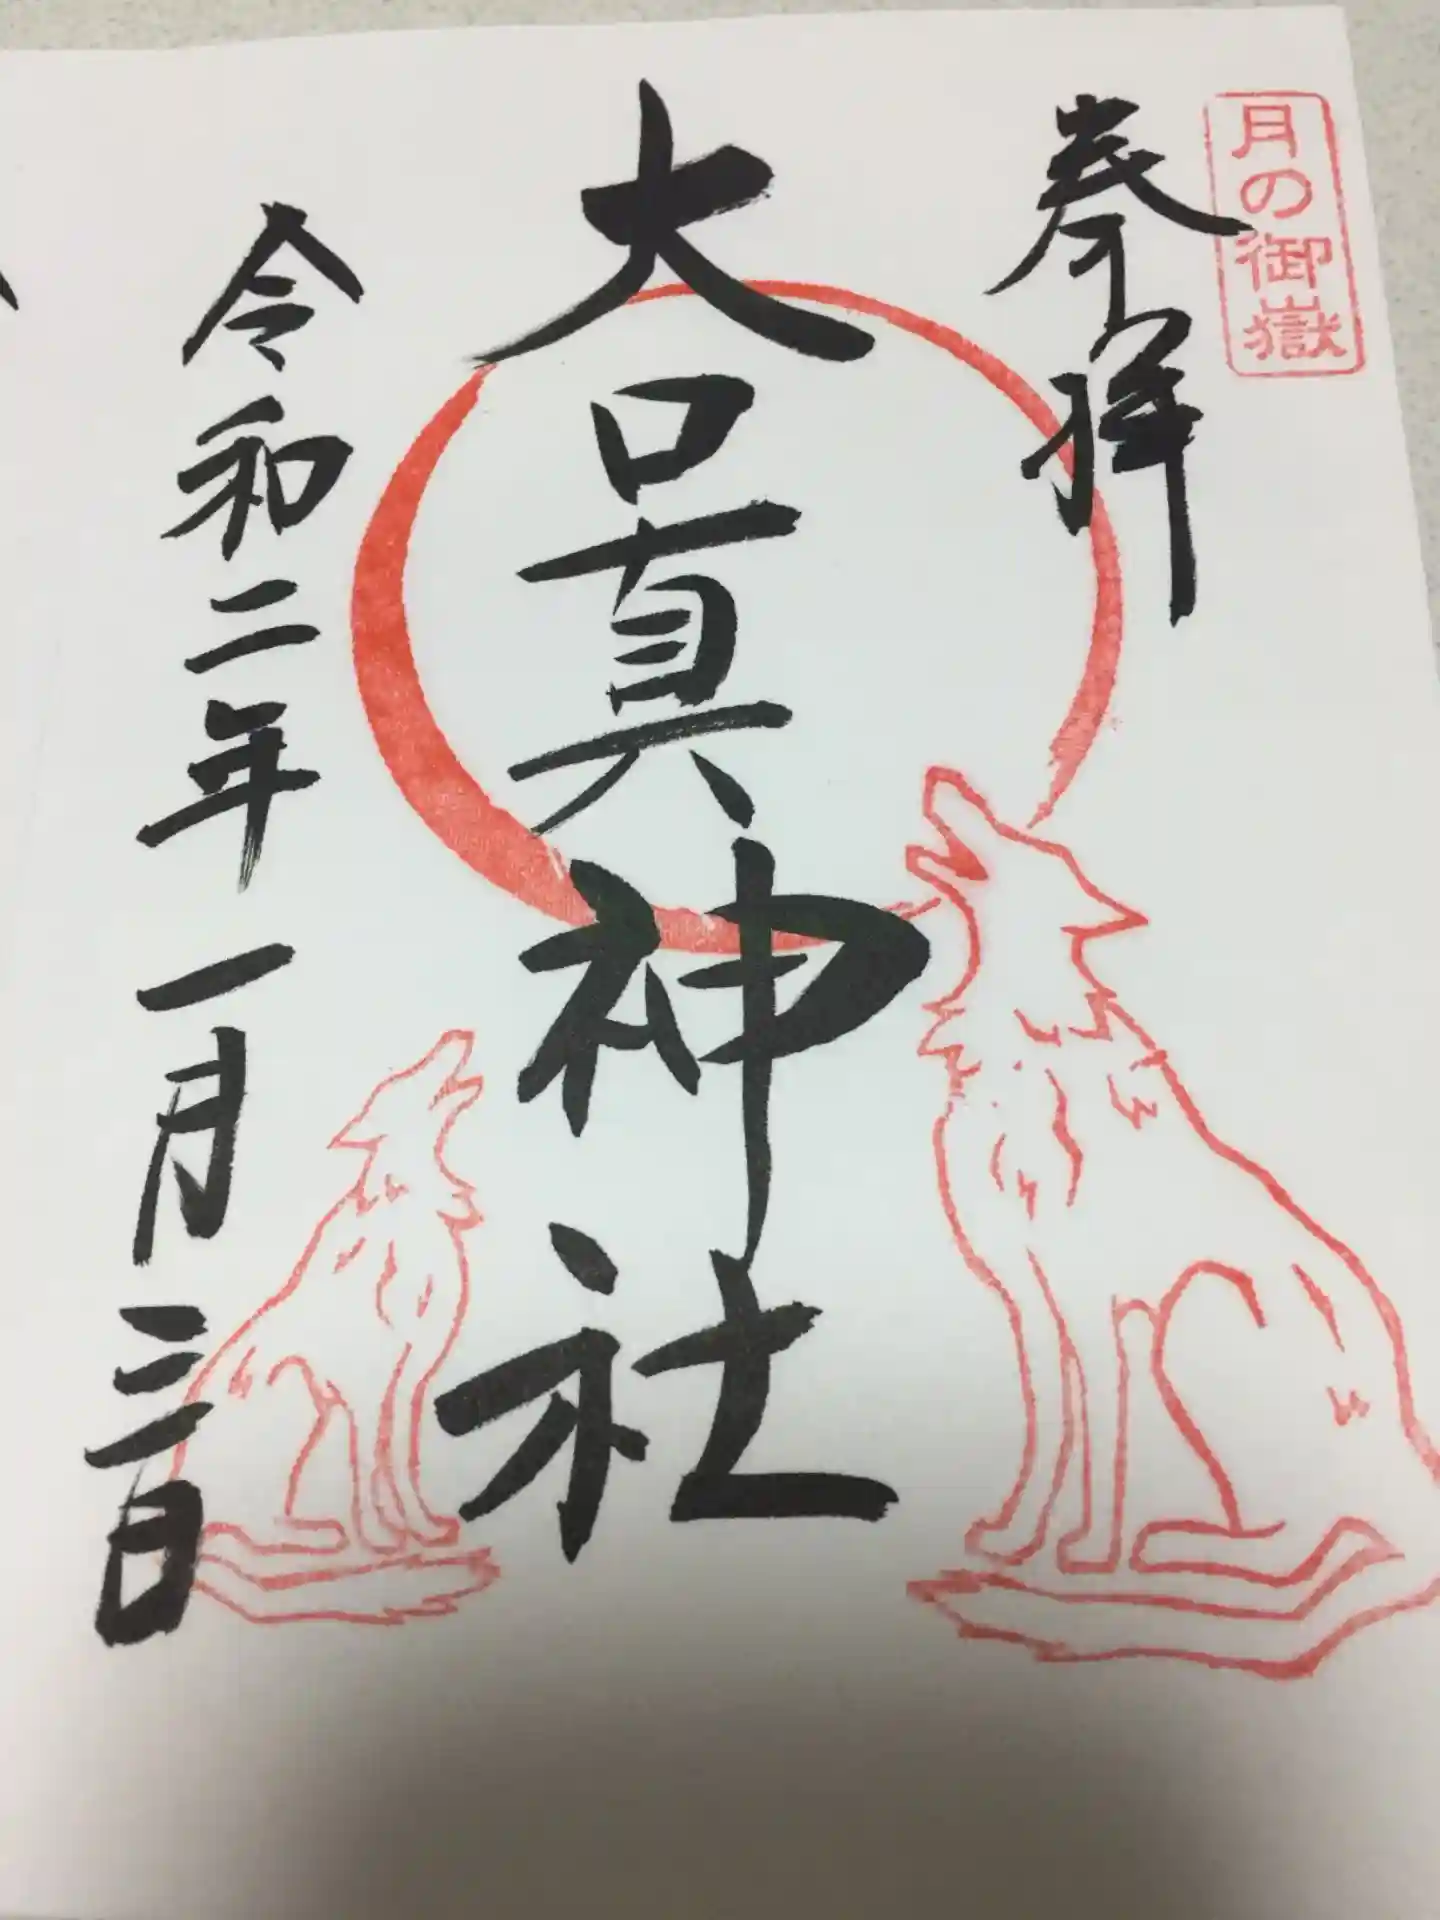 月の御嶽
奉拝
大口真神社
令和二年一月三日